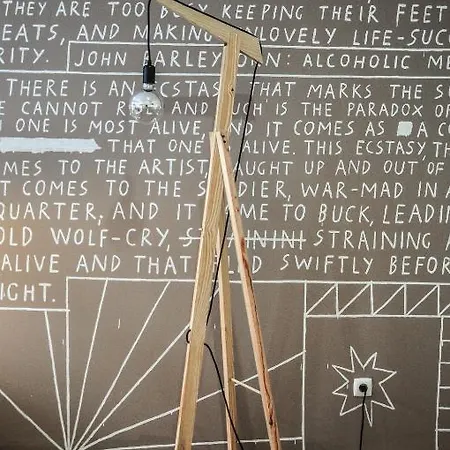 THEY ARE TOO BUSY KEEPING THEIR FEET
EATS, AND MAKING LOVELY LIFE-SUC
RITY. JOHN BARLEYCORN: ALCOHOLIC ME
THERE IS AN ECSTASY THAT MARKS THE SU
CANNOT RISE. AND SUCH IS THE PARADOX OF
ONE IS MOST ALIVE, AND IT COMES AS A CO
THAT ONE IS ALIVE. THIS ECSTASY, TH
OMES TO THE ARTIST, CAUGHT UP AND OUT OF
T COMES TO THE SOLDIER, WAR-MAD IN A
QUARTER, AND IT CAME TO BUCK, LEADIN
OLD WOLF-CRY, STRAINING A
ALIVE AND THAT FLED SWIFTLY BEFOR
IGHT.